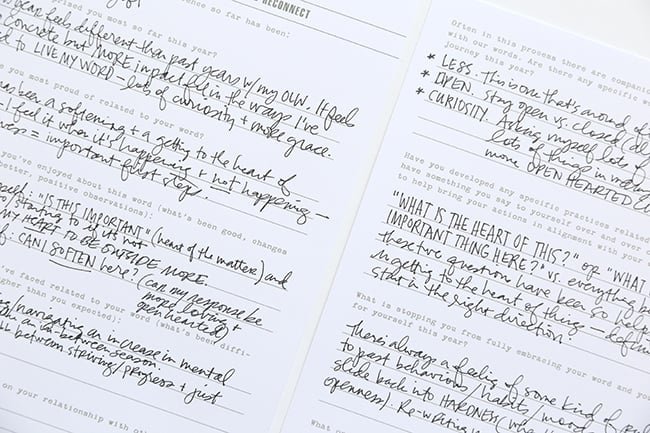 RECONNECT
this year so far has been:
surprised you most so far this year?
year feels different than past years w/ my OLW. It feels
concrete but MORE impactful in the ways I've
to LIVE MY WORD – lots of curiosity + more grace.
you most proud of related to your word?
has been a softening + a getting to the heart of
I feel it when it's happening + not happening –
= important first steps.
you've enjoyed about this word (what's been good, changes
better, positive observations):
"IS THIS IMPORTANT" (heart of the matter) and
starting to) if it's not
MY HEART TO BE OUTSIDE MORE.
CAN I SOFTEN here? (can my response be
more loving +
openhearted)
've faced related to your word (what's been diffi-
higher than you expected):
/navigating an increase in mental
an in between season.
between striving/progress + just
on your relationship with
Often in this process there are
with our words. Are there any specific
journey this year?
* LESS. This one that's around
* OPEN. Stay open vs. closed
* CURIOSITY. Asking myself lots of
lots of things in
more OPEN HEARTED
Have you developed any specific practices related
have something you say to yourself over and over
to help bring your actions in alignment with your
"WHAT IS THE HEART OF THIS?" or "WHAT I
IMPORTANT THING HERE?" vs. everything
these two question have been so help
in getting to the heart of things –
start in the right direction?
What is stopping you from fully embracing your word and
for yourself this year?
There's always a feeling of some kind of
to past behaviors/habits/mood
slide back into HARDNESS
openness). Re-writing
What